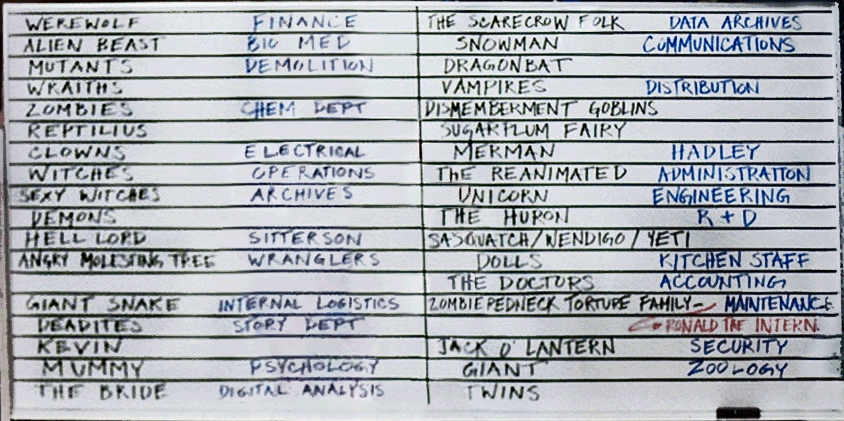 WEREWOLF FINANCE
ALIEN BEAST BIO MED
MUTANTS DEMOLITION
WRAITHS
ZOMBIES CHEM DEPT
REPTILIUS
CLOWNS ELECTRICAL
WITCHES OPERATIONS
SEXY WITCHES ARCHIVES
DEMONS
HELL LORD SITTERSON
ANGRY MOLESTING TREE WRANGLERS
GIANT SNAKE INTERNAL LOGISTICS
DEADITES STORY DEPT
KEVIN
MUMMY PSYCHOLOGY
THE BRIDE DIGITAL ANALYSIS
THE SCARECROW FOLK DATA ARCHIVES
SNOWMAN COMMUNICATIONS
DRAGONBAT
VAMPIRES DISTRIBUTION
DISMEMBERMENT GOBLINS
SUGARPLUM FAIRY
MERMAN HADLEY
THE REANIMATED ADMINISTRATION
UNICORN ENGINEERING
THE HURON R + D
SASQUATCH/WENDIGO/YETI
DOLLS KITCHEN STAFF
THE DOCTORS ACCOUNTING
ZOMBIE REDNECK TORTURE FAMILY - MAINTENANCE
RONALD THE INTERN.
JACK O' LANTERN SECURITY
GIANT ZOOLOGY
TWINS